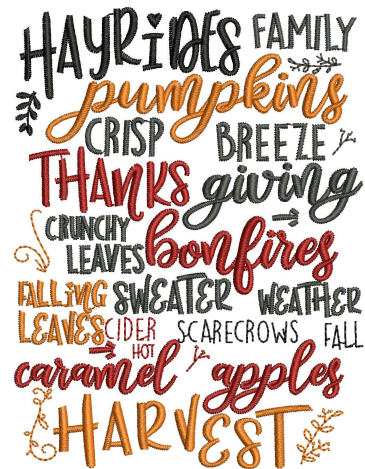 HAYRiDES FAMILY
pumpkins
CRISP BREEZE
THANKS giving
CRUNCHY
LEAVES bonfires
FALLiNG SWEATER WEATHER
LEAVES CIDER SCARECROWS FALL
HOT
caramel apples
HARVEST